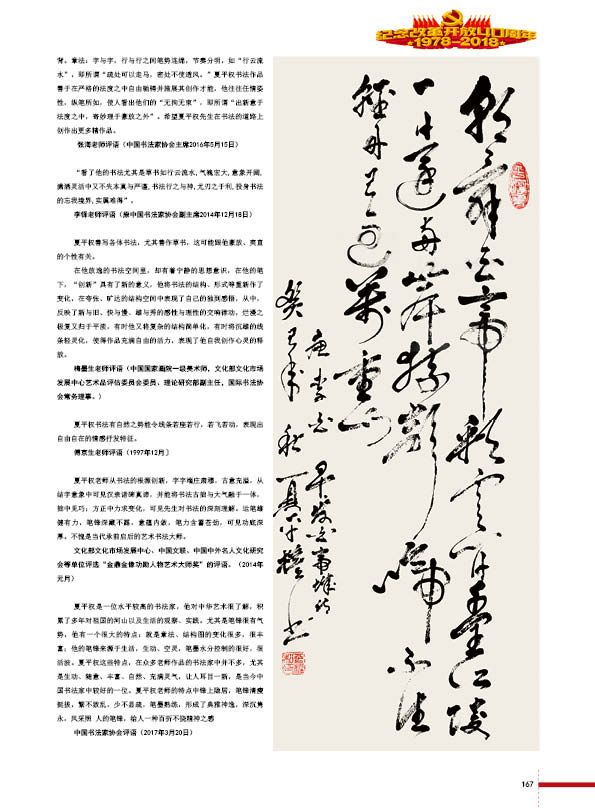 纪念改革开放40周年
1978-2018
背。章法:字与字,行与行之间笔势连绵,节奏分明,如“行云流
水”,即所谓“疏处可以走马,密处不使透风。”夏平权书法作品
善于在严格的法度之中自由驰骋并施展其创作才能,他往往任情姿
性,纵笔所如,使人看出他们的“无拘无束”,即所谓“出新意于
法度之中,寄妙理于豪放之外”。希望夏平权先生在书法的道路上
创作出更多精作品。
张海老师评语(中国书法家协会主席2016年5月15日)
“看了他的书法尤其是草书如行云流水,气魄宏大,意象开阔,
满洒灵活中又不失本真与严谨,书法行之与神,尤刃之于利,投身书法
的忘我境界,实属难得”。
李铎老师评语(原中国书法家协会副主席2014年12月18日)
夏平权善写各体书法,尤其善作草书,这可能跟他豪放、爽直
的个性有关。
在他放逸的书法空间里,却有着宁静的思想意识,在他的笔
下,“创新”具有了新的意义,他将书法的结构、形式等重新作了
变化,在夸张、旷达的结构空间中表现了自己的独到感悟,从中,
反映了新与旧、快与慢、雄与秀的感性与理性的交响律动,烂漫之
极复又归于平淡,有时他又将复杂的结构简单化,有时将沉雄的线
条轻灵化,使得作品充满自由的活力,表现了他自我创作心灵的释
放。
梅墨生老师评语(中国国家画院一级美术师,文化部文化市场
发展中心艺术品评估委员会委员、理论研究部副主任,国际书法协
会常务理事。)
夏平权书法有自然之势能令线条若座若行,若飞若动,表现出
自由自在的情感抒发特征。
傅京生老师评语(1997年12月]
夏平权老师从书法的根源创新,字字端庄肃穆,古意充溢,从
结字意象中可见汉隶诸碑真谛,并能将书法古拙与大气融于一体,
拙中见巧;方正中力求变化,可见先生对书法的深刻理解。运笔雄
健有力,笔锋深藏不露,意蕴内敛,笔力含蓄苍劲,可见功底深
厚。不愧是当代承前启后的艺术书法大师。
文化部文化市场发展中心、中国文联、中国中外名人文化研究
会等单位评选“金鼎金像功勋人物艺术大师奖”的评语。(2014年
元月)
夏平权是一位水平较高的书法家,他对中华艺术很了解,积
累了多年对祖国的河山以及生活的观察、实践。尤其是笔锋很有气
势,他有一个很大的特点:就是章法、结构图的变化很多,很丰
富;他的笔锋来源于生活,生动、空灵,笔墨水分控制的很好,很
活泼。夏平权这些特点,在众多老师作品的书法家中并不多。尤其
是生动、随意、丰富、自然、充满灵气,让人耳目一新,是当今中
国书法家中较好的一位。夏平权老师的特点中锋上隐居,笔锋清瘦
挺拔,繁不散乱,少不显疏,笔墨熟练,形成了典雅神逸,深沉隽
永,风采照 人的笔锋,给人一种百折不挠精神之感
中国书法家协会评语(2017年3月20日)
朝辞白帝彩云间千里江陵
一日还两岸猿声啼不住
轻舟已过万重山
唐李白早发白帝城诗
癸巳年秋夏平权书
167